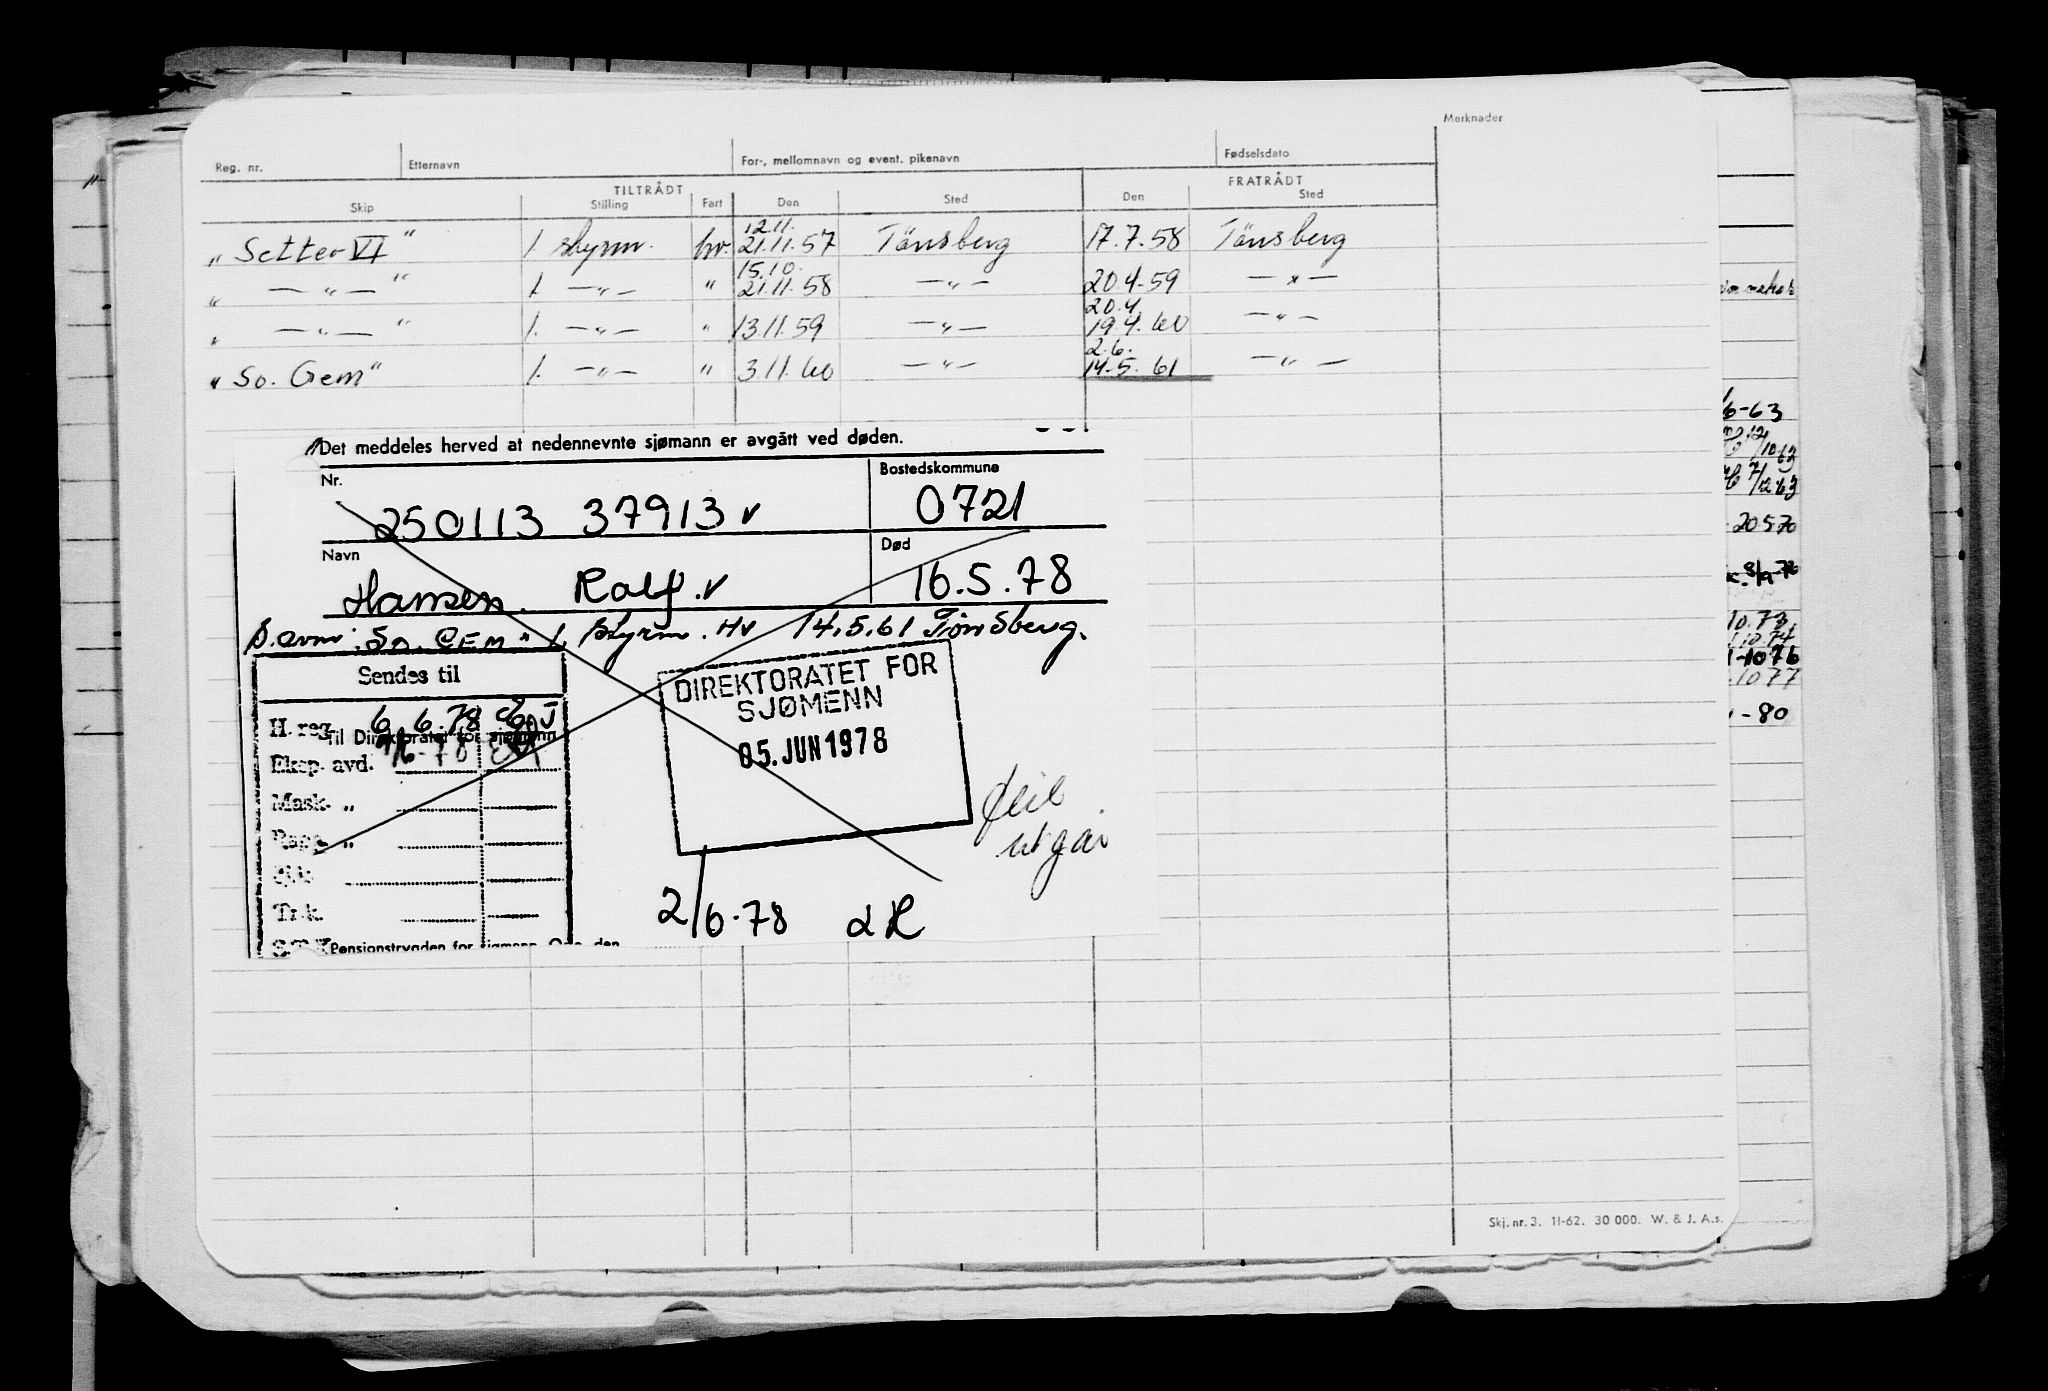 Merknader
Reg. nr. Etternavn For-, mellomnavn og event. pikenavn Fødselsdato
TILTRÅDT FRATRÅDT
Skip Stilling Fart Den Sted Den Sted
12.11.
„ Setter VI " 1. styrm. hv. 21.11.57 Tönsberg 17.7.58 Tönsberg
15.10.
„ — „ — " 1. — „ — " 21.11.58 — „ — 20.4.59 — „ —
20.4.
„ — „ — " 1. — „ — " 13.11.59 — „ — 19.4.60 — „ —
2.6.
„ So. Gem" 1. — „ — " 3.11.60 — „ — 14.5.61 — „ —
Det meddeles herved at nedennevnte sjømann er avgått ved døden.
Nr. Bostedskommune
250113 37913 v 0721
Navn Død
Hansen. Rolf. v 16.5.78
S. avm: „So. GEM" 1. styrm. Hv 14.5.61 Tönsberg.
Sendes til
DIREKTORATET FOR
SJØMENN
05. JUN 1978
H. reg. 6.6.78
Til Direktoratet for sjømenn
Eksp. avd. /6-78
Mask. „
Rapp. „
Tr.k.
Pensjonstrygden for sjømenn, Oslo, den
Feil
utgår
2/6.78 dR
6-63
12/10 63
7/12 63
20 5 70
10.73
10.74
-10 76
.10 77
-80
Skj. nr. 3. 11-62. 30 000. W. & J. A.s.